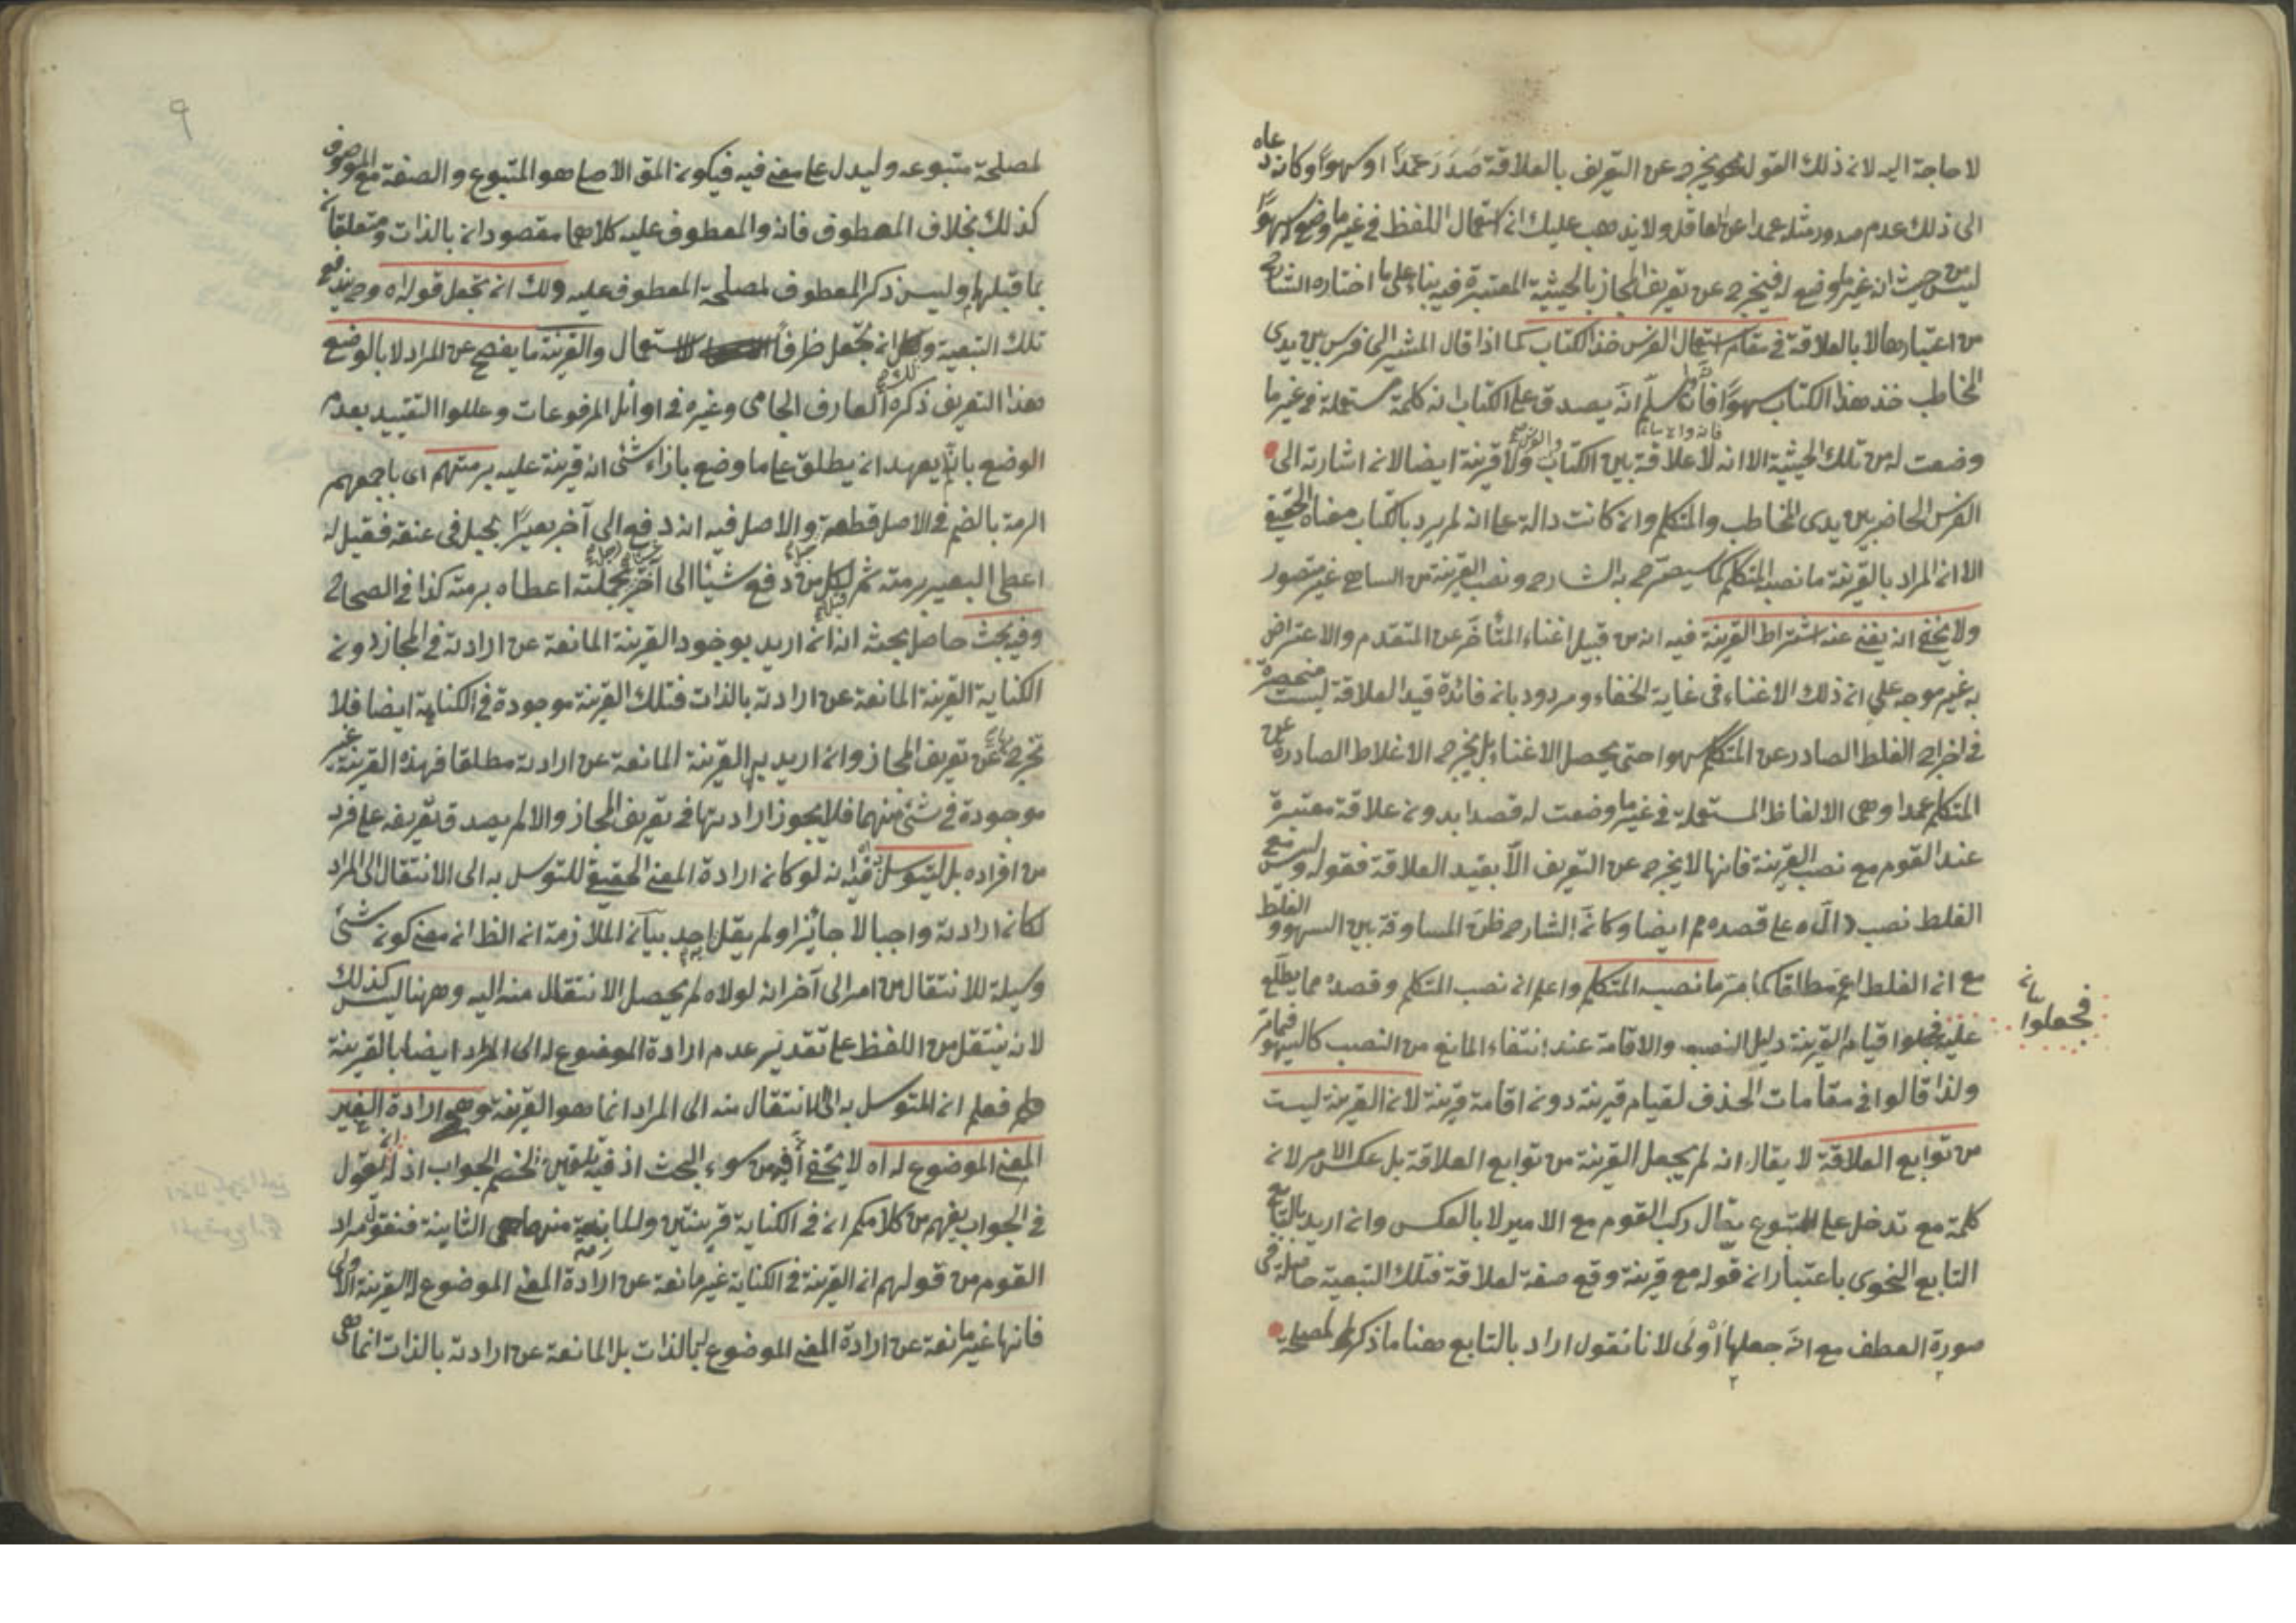 لا حاجة اليه لان ذلك القول يخرج عن التعريف بالعلاقة صَدَرَ عَمْدًا او سهوًا وكانه دعاه
الى ذلك عدم صدور مثله عمدا عن العاقل ولا يذهب عليك ان استعمال اللفظ في غير ما وضع له سهوًا
ليس من حيث انه غير ما وضع له فيخرج عن تعريف المجاز بالحيثية المعتبرة فيه بناء على ما اختاره الشارح
من اعتبارها لا بالعلاقة في مقام استعمال الفرس خذ الكتاب كما اذا قال المشير الى فرس بين يدى
المخاطب خذ هذا الكتاب سهوًا فانه سلم انه يصدق على الكتاب انه كلمة مستعملة في غير ما
وضعت له من تلك الحيثية الا انه لا علاقة بين الكتاب والفرس ولا قرينة ايضا لان اشارته الى
الفرس الحاضر بين يدى المخاطب والمتكلم وان كانت دالة على انه لم يرد بالكتاب معناه الحقيقي
الا ان المراد بالقرينة ما نصبه المتكلم كما سيصرح به الشارح ونصب القرينة من الساهي غير متصور
ولا يخفى انه يغنى عنه اشتراط القرينة فيه انه من قبيل اغناء المتأخر عن المتقدم والاعتراض
به غير موجه على ان ذلك الاغناء في غاية الخفاء ومردود بان فائدة قيد العلاقة ليست منحصرة
في اخراج الغلط الصادر عن المتكلم سهوا حتى يحصل الاغناء بل يخرج الاغلاط الصادرة عن
المتكلم عمدا وهى الالفاظ المستعملة في غير ما وضعت له قصدا بدون علاقة معتبرة
عند القوم مع نصب القرينة فانها لا يخرج عن التعريف الا بقيد العلاقة فقوله وليس مع
الغلط نصب دالة على قصده مم ايضا وكانَّ الشارح ظن المساوقة بين السهو والغلط
مع ان الغلط اعم مطلقا كما مر ما نصبه المتكلم واعلم ان نصب المتكلم وقصده مما يطلع
عليه فجعلوا قيام القرينة دليل النصب والاقامة عند انتفاء المانع من النصب كالسهو فيما مر
بيانه
فجعلوا
ولذا قالوا في مقامات الحذف لقيام قرينة دون اقامة قرينة لان القرينة ليست
من توابع العلاقة لا يقال انه لم يجعل القرينة من توابع العلاقة بل عكس الامر لان
كلمة مع تدخل على المتبوع يقال ركب القوم مع الامير لا بالعكس وان اريد بالتابع
التابع النحوى باعتبار ان قوله مع قرينة وقع صفة لعلاقة فتلك التبعية حاصلة في
صورة العطف مع انه جعلها أَوْلَى لانا نقول اراد بالتابع هنا ما ذكر لمصلحة
٩
لمصلحة متبوعه وليدل على معنى فيه فيكون المق الاصلى هو المتبوع والصفة مع الموصوف
كذلك بخلاف المعطوف فانه والمعطوف عليه كلاهما مقصودان بالذات ومتعلقا
بما قبلهما وليس ذكر المعطوف لمصلحة المعطوف عليه ولك ان تجعل قوله اه وح يندفع
تلك التبعية ان تجعل ظرفاً للاستعمال والقرينة ما يفصح عن المراد لا بالوضع
هذا التعريف ذكره العارف الجامى وغيره في اوائل المرفوعات وعللوا التقييد بعدم
الوضع بانه لم يعهد ان يطلق على ما وضع بازاء شئ انه قرينة عليه برمتهم اى باجمعهم
الرمة بالضم في الاصل قطعة والاصل فيه انه دفع الى آخر بعيرًا بحبل في عنقه فقيل له
اعطى البعير برمته ثم قيل لكل من دفع شيئا الى آخر بجملته اعطاه برمته كذا في الصحاح
وفيه بحث حاصل بحثه انه ان اريد بوجود القرينة المانعة عن ارادته في المجاز دون
الكناية القرينة المانعة عن ارادته بالذات فتلك القرينة موجودة في الكناية ايضا فلا
تخرج عن تعريف المجاز وان اريد به القرينة المانعة عن ارادته مطلقا فهذه القرينة غير
موجودة في شئ منهما فلا يجوز ارادتها في تعريف المجاز والا لم يصدق تعريفه على فرد
من افراده بل للتوسل فيه انه لو كان ارادة المعنى الحقيقي للتوسل به الى الانتقال الى المراد
لكان ارادته واجبا لا جائزا ولم يقل احد به بيان الملازمة ان الظ ان معنى كون شئ
وسيلة للانتقال من امر الى آخر انه لولاه لم يحصل الانتقال منه اليه وههنا ليس كذلك
لانه ينتقل من اللفظ على تقدير عدم ارادة الموضوع له الى المراد ايضا بالقرينة
فعلم ان المتوسل به الى الانتقال منه الى المراد انما هو القرينة ارادة الغير
المعنى الموضوع له اه لا يخفى سوء البحث اذ فيه تلقين الخصم الجواب اذ له ان يقول
في الجواب يفهم من كلامكم ان في الكناية قرينتين والمانعة منهما هى الثانية فنقول مراد
القوم من قولهم ان القرينة في الكناية غير مانعة عن ارادة المعنى الموضوع له القرينة الاولى
فانها غير مانعة عن ارادة المعنى الموضوع له بالذات بل المانعة عن ارادته بالذات انما هى